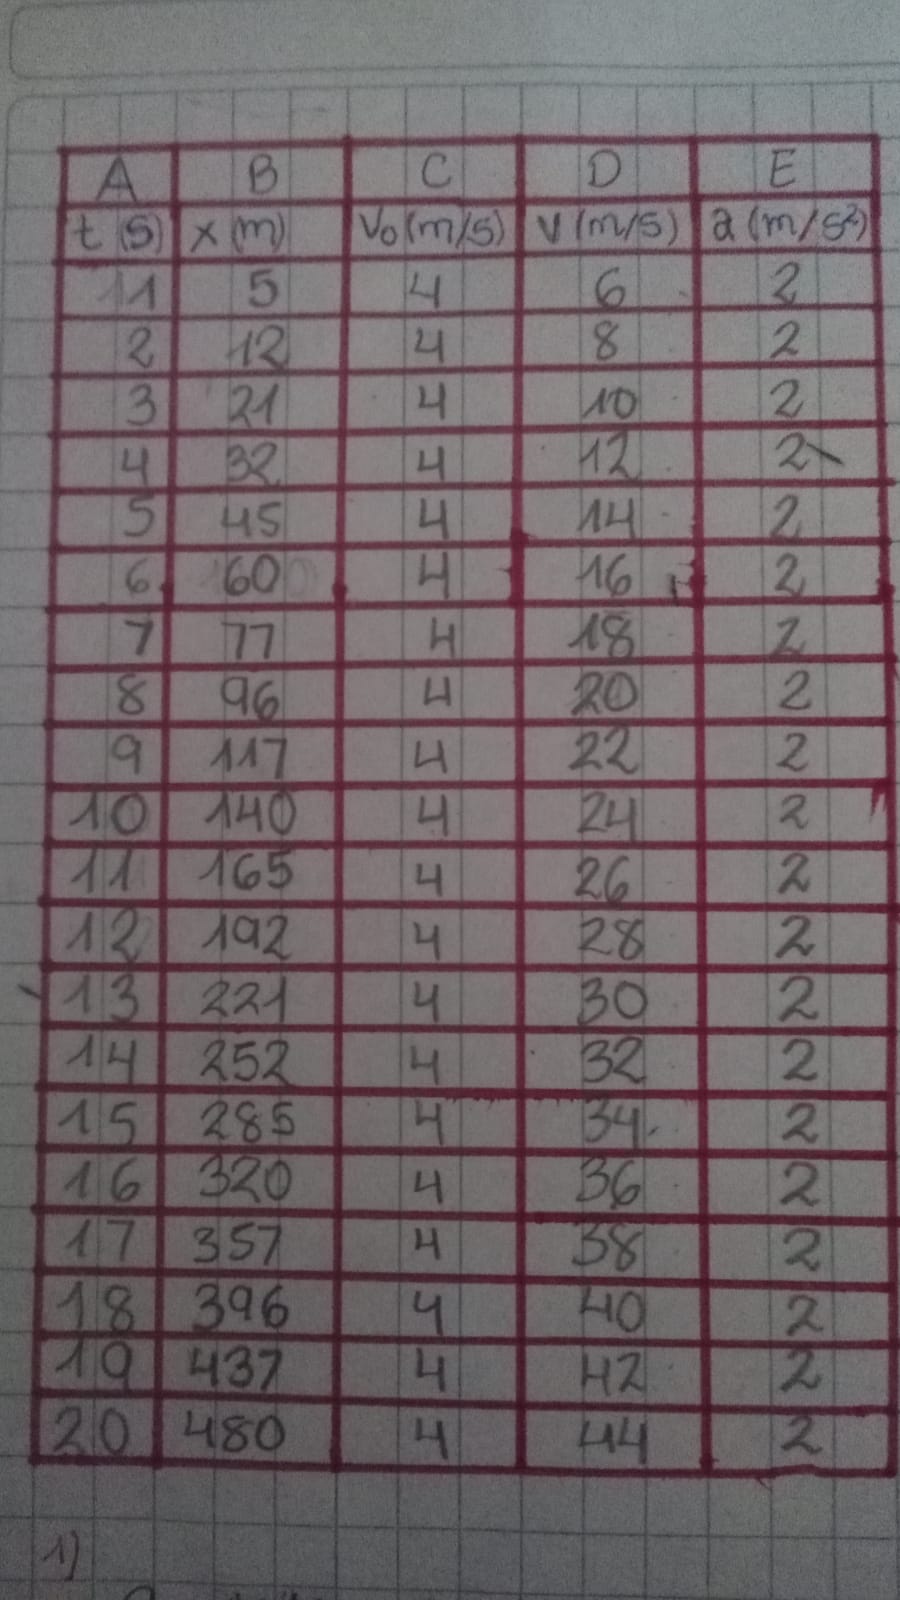 A B C D E
t (s) x (m) V₀ (m/s) V (m/s) a (m/s²)
1 5 4 6 2
2 12 4 8 2
3 21 4 10 2
4 32 4 12 2
5 45 4 14 2
6 60 4 16 2
7 77 4 18 2
8 96 4 20 2
9 117 4 22 2
10 140 4 24 2
11 165 4 26 2
12 192 4 28 2
13 221 4 30 2
14 252 4 32 2
15 285 4 34 2
16 320 4 36 2
17 357 4 38 2
18 396 4 40 2
19 437 4 42 2
20 480 4 44 2
1)